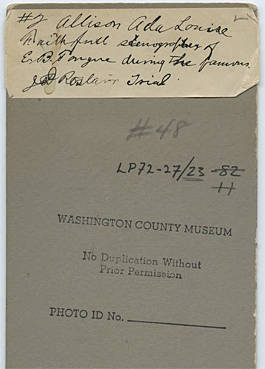 #2 Allison Ada Louise
Faithfull stenographer of
E.B. Tongue during the famous
J.D. Trial
#48
LP72-27/23 -82
H
WASHINGTON COUNTY MUSEUM
No Duplication Without
Prior Permission
PHOTO ID No.